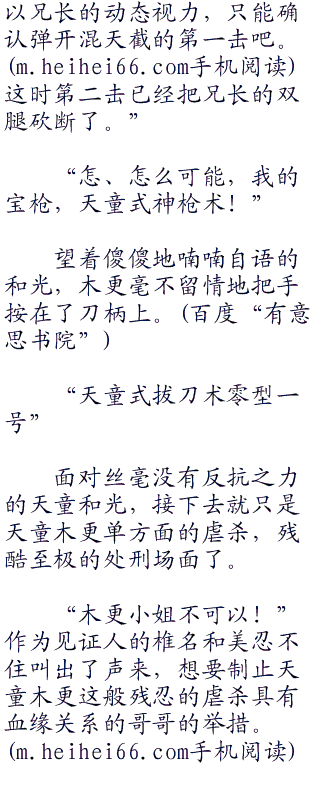 以兄长的动态视力，只能确
认弹开混天截的第一击吧。
(m.heihei66.com手机阅读)
这时第二击已经把兄长的双
腿砍断了。”
“怎、怎么可能，我的
宝枪，天童式神枪术！”
望着傻傻地喃喃自语的
和光，木更毫不留情地把手
按在了刀柄上。(百度“有意
思书院”)
“天童式拔刀术零型一
号”
面对丝毫没有反抗之力
的天童和光，接下去就只是
天童木更单方面的虐杀，残
酷至极的处刑场面了。
“木更小姐不可以！”
作为见证人的椎名和美忍不
住叫出了声来，想要制止天
童木更这般残忍的虐杀具有
血缘关系的哥哥的举措。
(m.heihei66.com手机阅读)